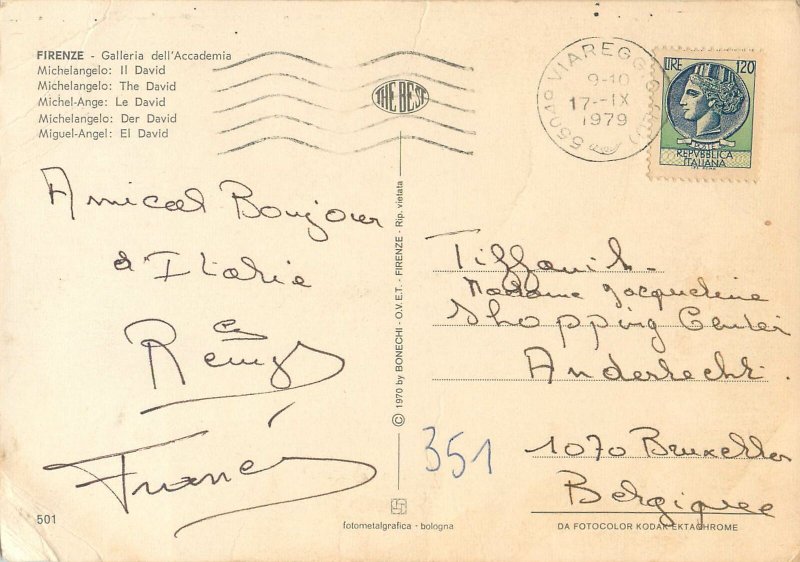 FIRENZE - Galleria dell'Accademia
Michelangelo: Il David
Michelangelo: The David
Michel-Ange: Le David
Michelangelo: Der David
Miguel-Angel: El David
THE BEST
55049 VIAREGGIO (LU)
9-10
17--IX
1979
LIRE 120
POSTE
REPVBBLICA
ITALIANA
Amical Bonjour
d'Italie
Rémy
&
Francis
501
© 1970 by BONECHI - O.V.E.T. - FIRENZE - Rip. vietata
fotometalgrafica - bologna
Madame Jacqueline
Shopping Center
Anderlecht.
351
1070 Bruxelles
Belgique
DA FOTOCOLOR KODAK EKTACHROME